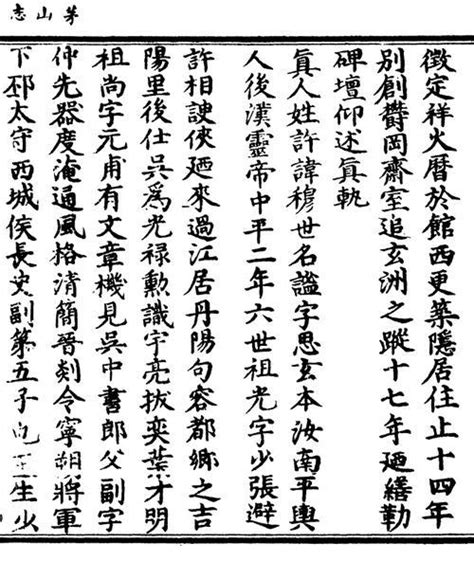 茅山志
徵定祥火曆於館西更築隱居住止十四年
別創欝岡齋室追玄洲之蹤十七年廼繕勒
碑壇仰述眞軌
眞人姓許諱穆世名謐字思玄本汝南平輿
人後漢靈帝中平二年六世祖光字少張避
許相諛俠廼來過江居丹陽句容都鄉之吉
陽里後仕吳爲光禄勳識宇亮拔奕葉才明
祖尚字元甫有文章機見吳中書郎父副字
仲先器度淹通風格清簡晉剡令寧朔將軍
下邳太守西城侯長史副第五子也生少